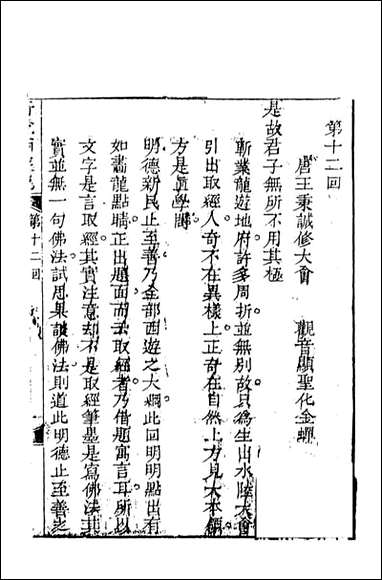 第十二回
唐王秉誠修大會　觀音顯聖化金蟬
是故君子無所不用其極
斬業龍遊地府許多周折並無別故只為生出水陸大會
引出取經人奇不在異樣上正奇在自然上方見大本領
方是真學問
明德新民止至善乃全部西遊之大綱此回明明點出有
如畵龍點睛正出題面而云取經者乃借題寓言耳所以
文字是言取經其實注意却不是取經筆墨是寫佛法其
實並無一句佛法試思果談佛法則道此明德止至善之
第十二回